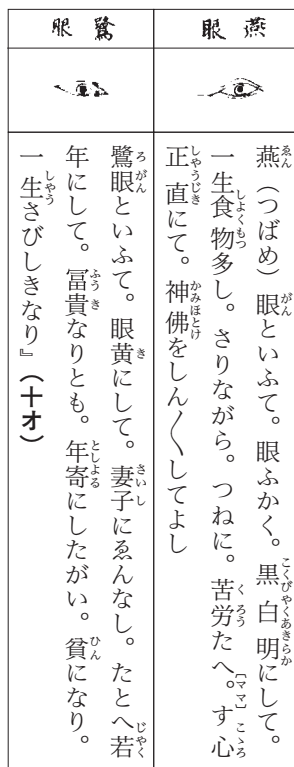 燕眼
燕（つばめ）眼といふて。眼ふかく。黒白明にして。
一生食物多し。さりながら。つねに。苦労たへ。［ママ］す心
正直にて。神佛をしん〳〵してよし
鷺眼
鷺眼といふて。眼黄にして。妻子にゑんなし。たとへ若
年にして。冨貴なりとも。年寄にしたがい。貧になり。
一生さびしきなり』（十オ）